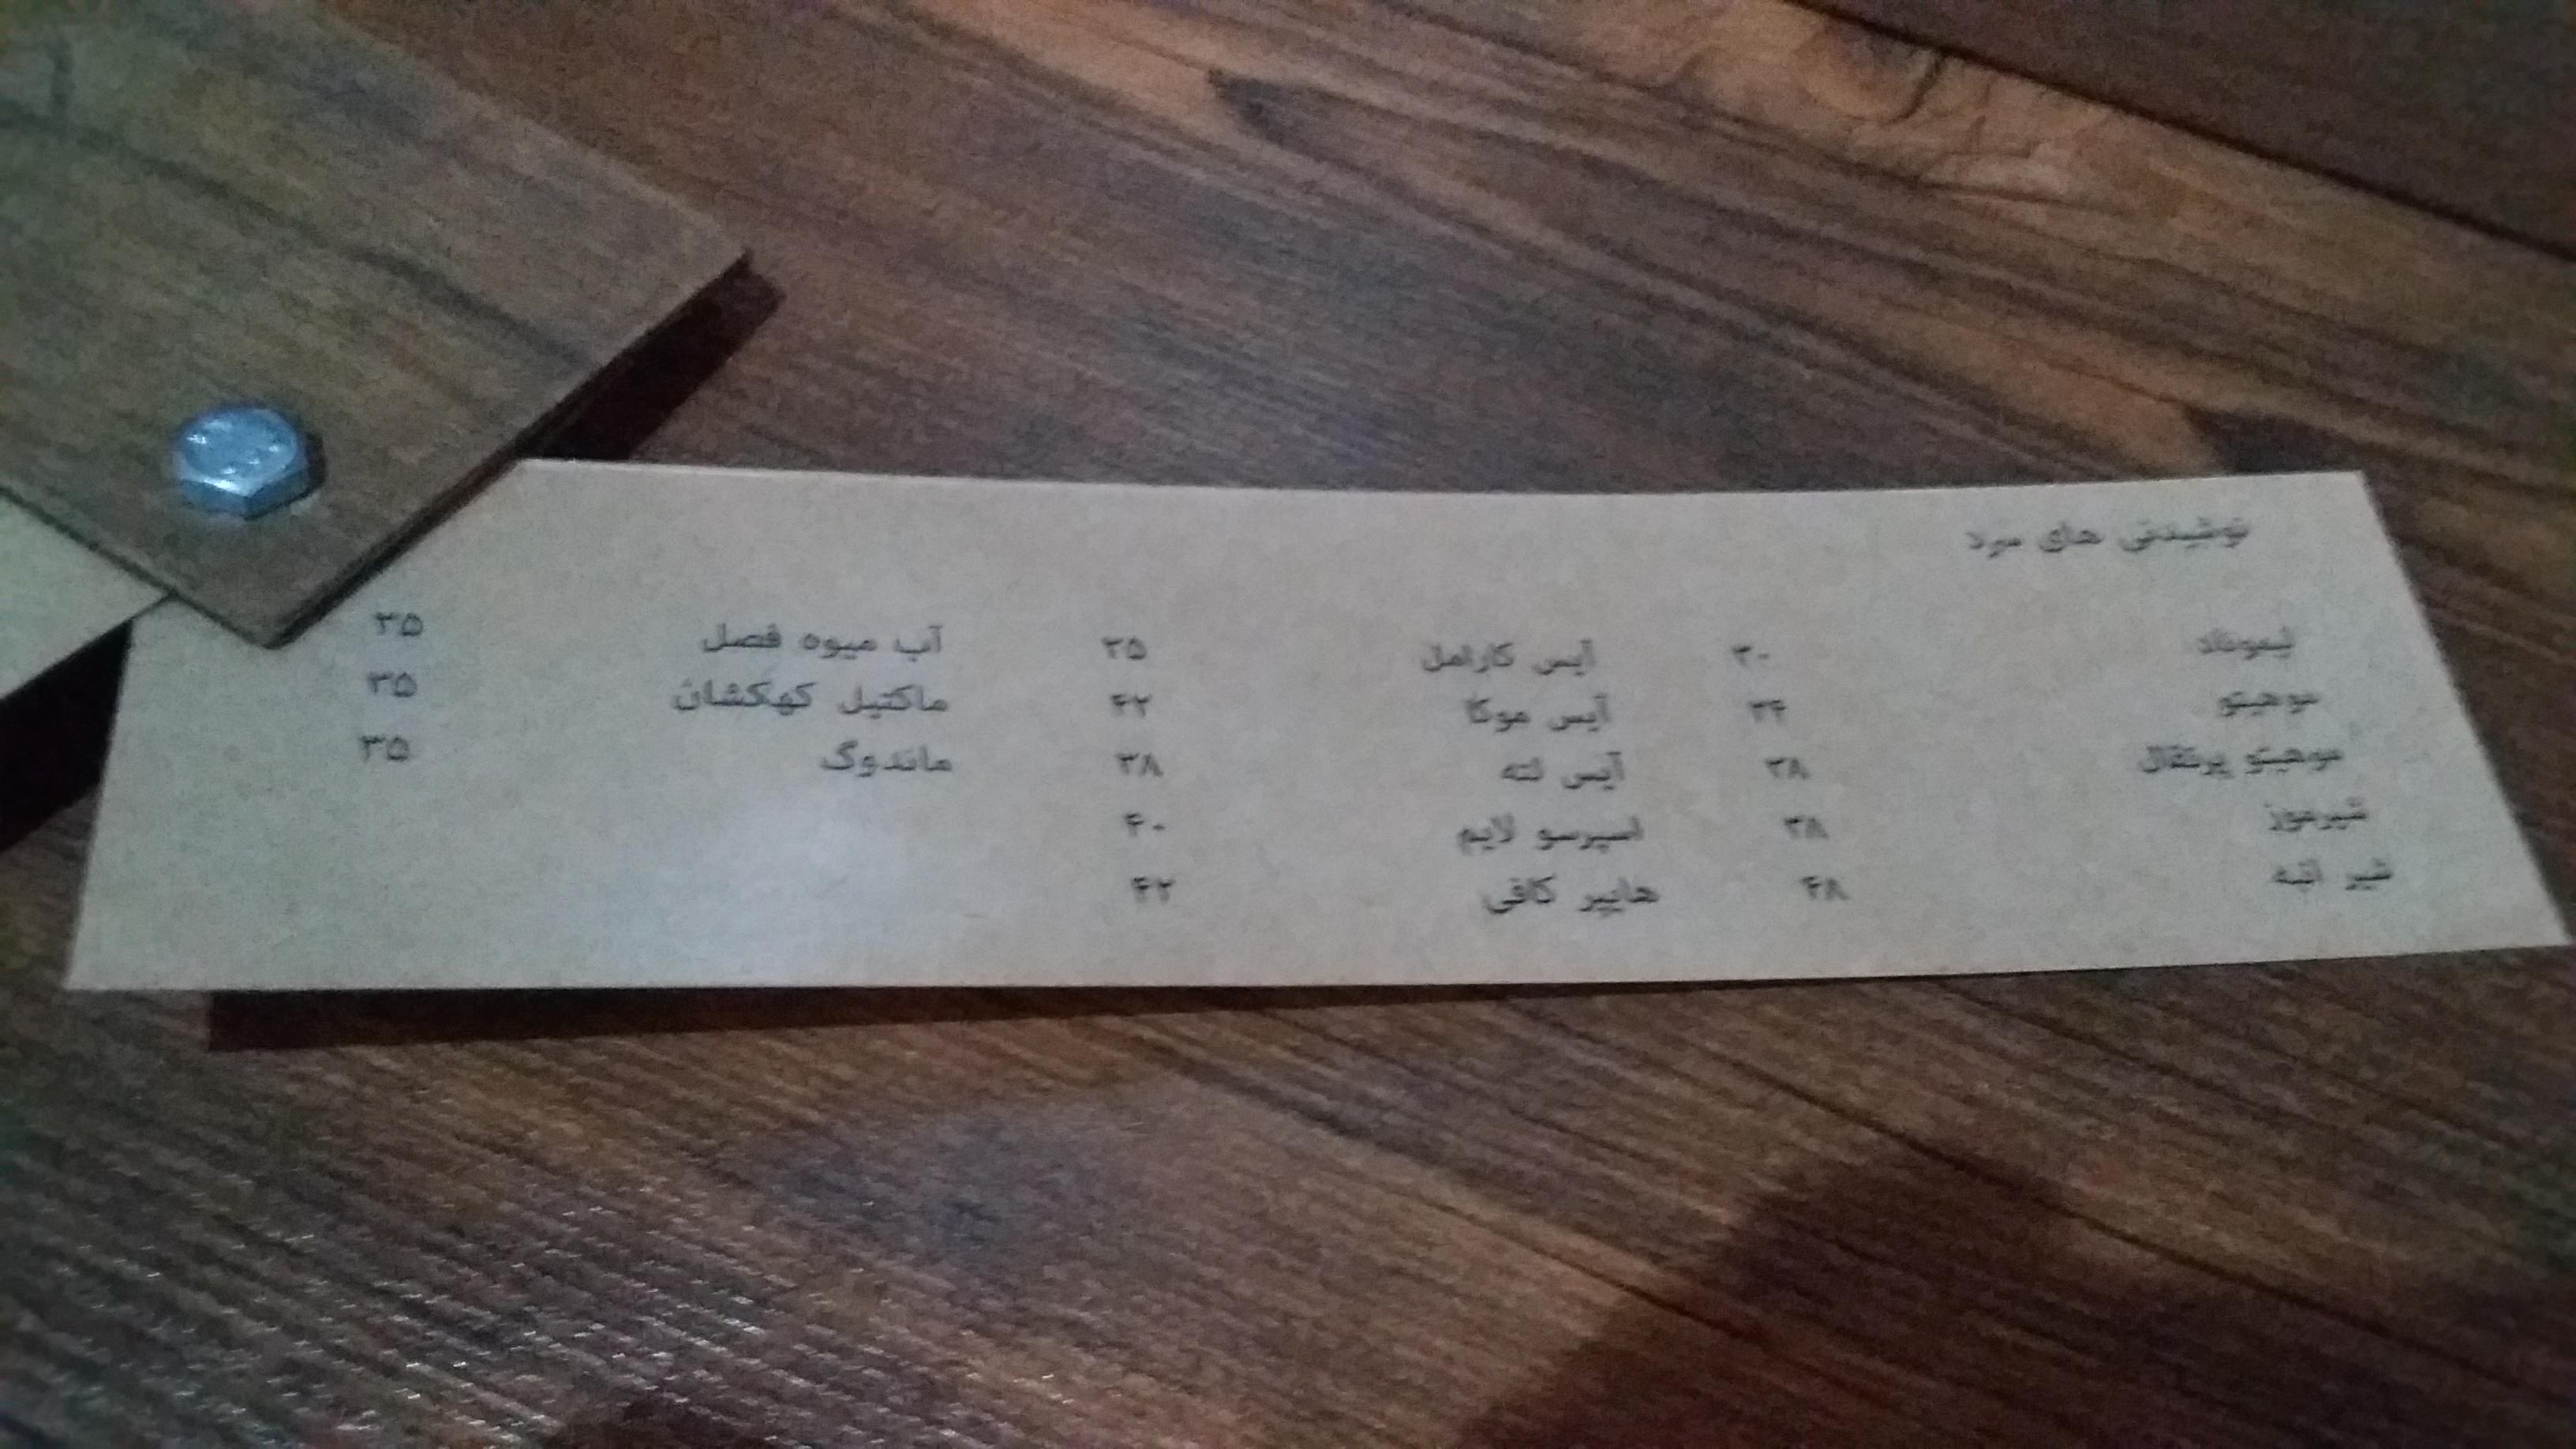 نوشیدنی های سرد
لیموناد ۳۰
موهیتو ۳۴
موهیتو پرتقال ۳۸
شیرموز ۳۸
شیر انبه ۴۸
آیس کارامل ۳۵
آیس موکا ۴۲
آیس لته ۳۸
اسپرسو لایم ۴۰
هایپر کافی ۴۲
آب میوه فصل ۳۵
ماکتیل کهکشان ۳۵
ماندوگ ۳۵